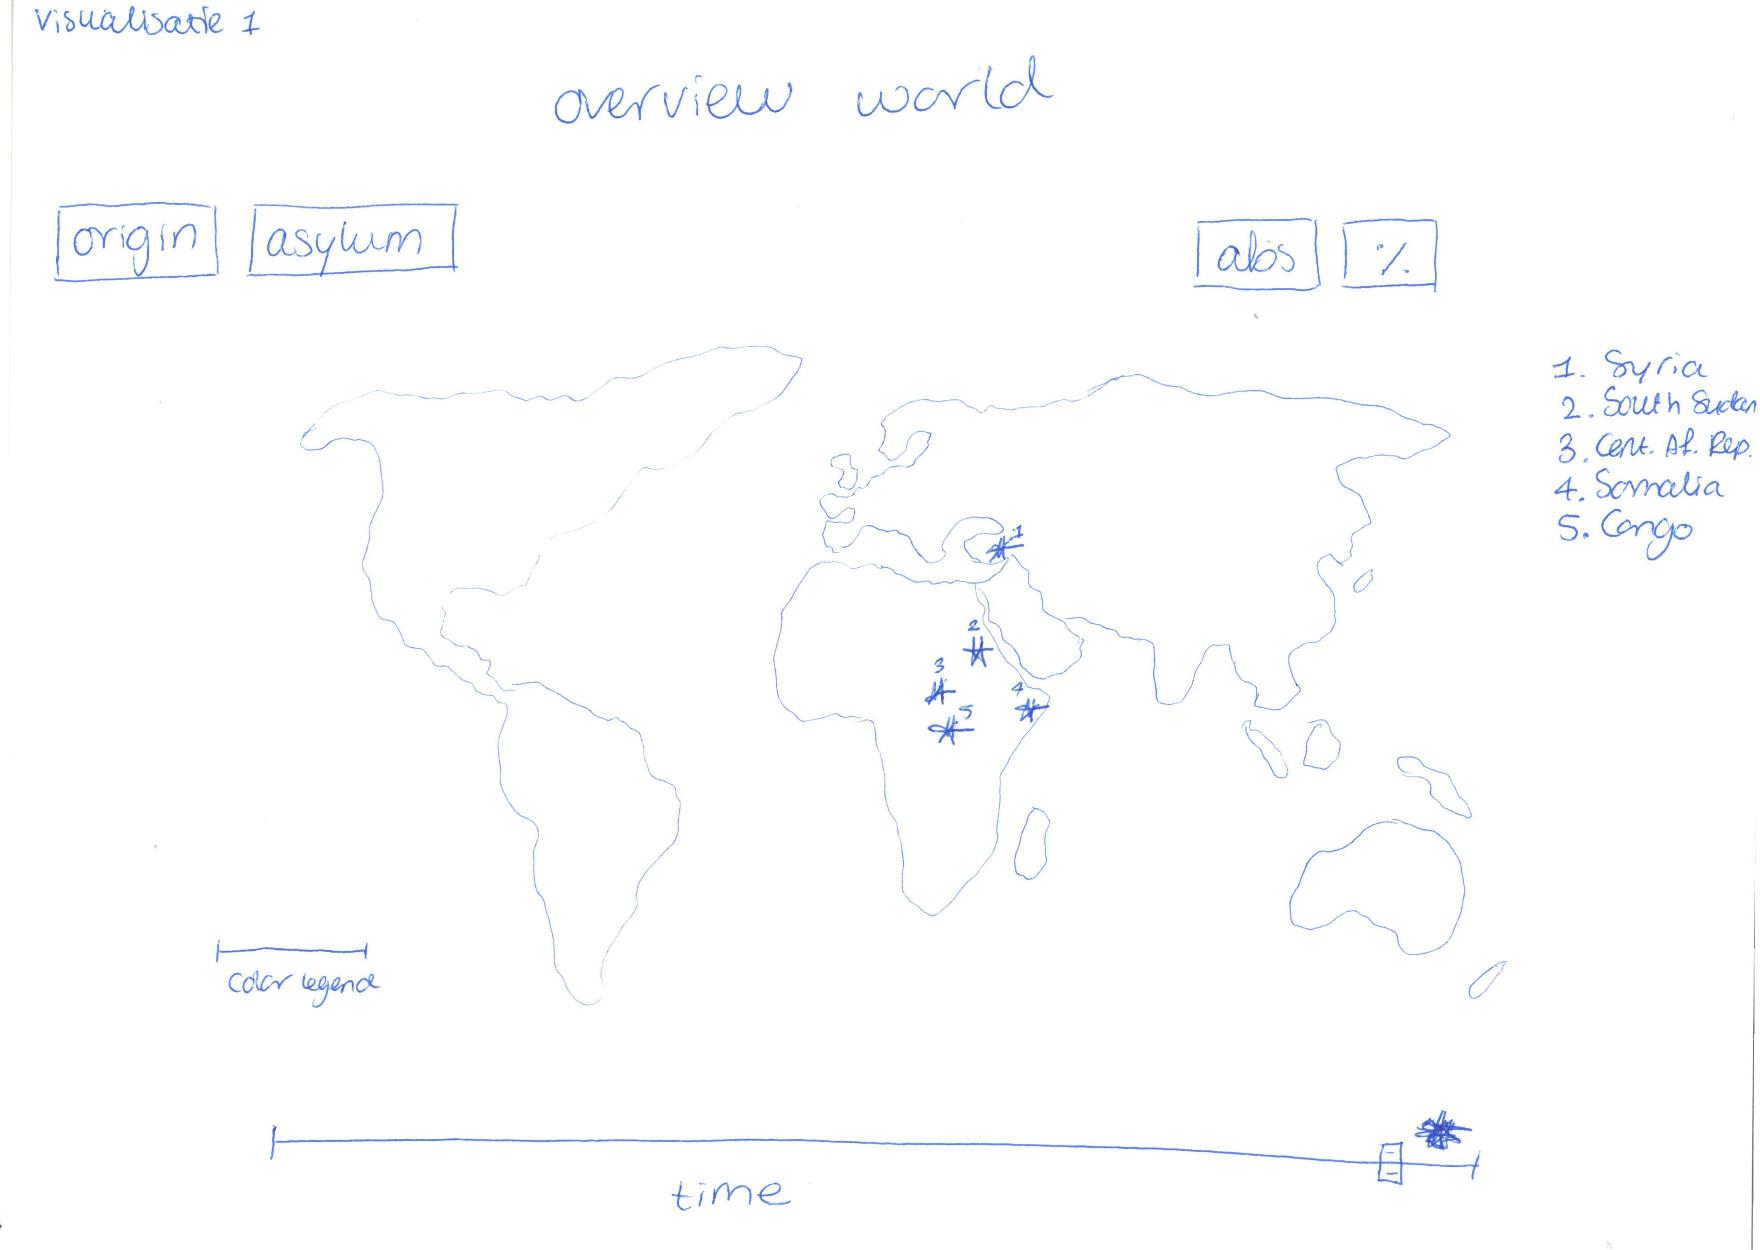 visualisatie 1
overview world
origin asylum abs %
1. Syria
2. South Sudan
3. Cent. Af. Rep.
4. Somalia
5. Congo
1
2
3
4
5
Color legend
time